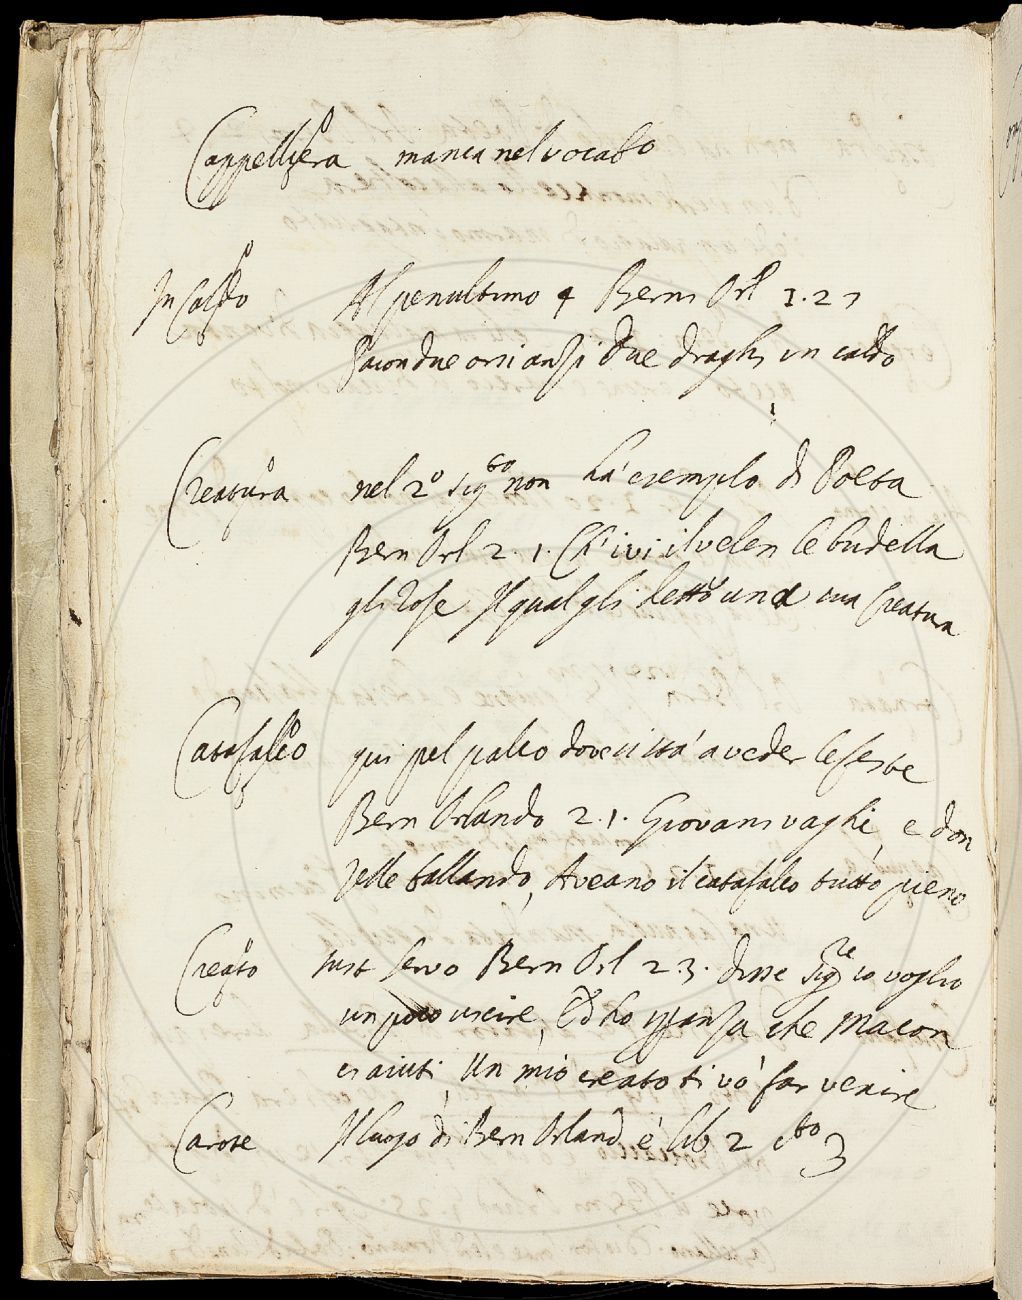 Cappelliera manca nel vocabo
In caldo Al penultimo 4 Bern Orl 1.27
Pacon due orsi anzi due draghi in caldo
Creatura nel 2º sigto non ha esempio di Poeta
Bern Orl 2.1. Ch' ivi il velen le budella
gli rose Il qual gli dette una sua creatura
Catafalco qui pel palco dove si sta' a veder le feste
Bern Orlando 2.1. Giovani vaghi, e don
zelle ballando, Aveano il catafalco tutto pieno
Creato sust servo Bern Orl 2.3. disse Sigre io voglio
un poco uscire, Ed ho speranza che Macon
ci aiuti Un mio creato ti vo' far venire
Carote Il luogo di Bern Orland è lib 2 cto 3